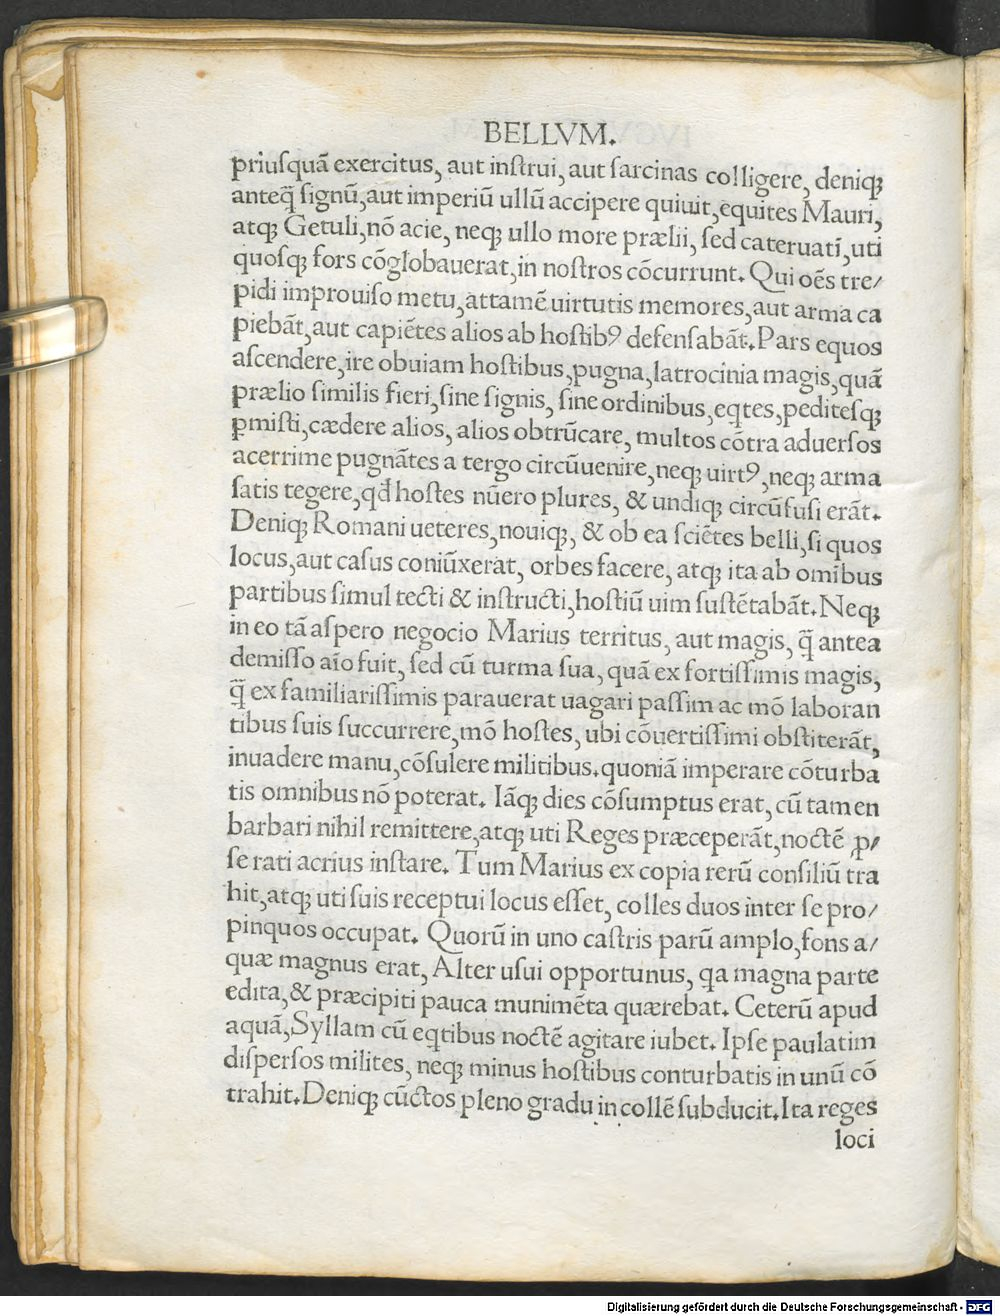 BELLVM.
priuſquã exercitus, aut inſtrui, aut ſarcinas colligere, deniqꝫ
anteq̃ ſignũ, aut imperiũ ullũ accipere quiuit, equites Mauri,
atqꝫ Getuli, nõ acie, neqꝫ ullo more prælii, ſed cateruati, uti
quoſqꝫ fors cõglobauerat, in noſtros cõcurrunt. Qui oẽs tre/
pidi improuiſo metu, attamẽ uirtutis memores, aut arma ca
piebãt, aut capiẽtes alios ab hoſtibꝰ defenſabãt. Pars equos
aſcendere, ire obuiam hoſtibus, pugna, latrocinia magis, quã
prælio ſimilis fieri, ſine ſignis, ſine ordinibus, eqtes, peditefqꝫ
ꝑmiſti, cædere alios, alios obtrũcare, multos cõtra aduerſos
acerrime pugnãtes a tergo circũuenire, neqꝫ uirtꝰ, neqꝫ arma
ſatis tegere, qđ hoſtes nũero plures, & undiqꝫ circũfuſi erãt.
Deniqꝫ Romani ueteres, nouiqꝫ, & ob ea ſciẽtes belli, ſi quos
locus, aut caſus coniũxerat, orbes facere, atqꝫ ita ab omibus
partibus ſimul tecti & inſtructi, hoſtiũ uim ſuſtẽtabãt. Neqꝫ
in eo tã aſpero negocio Marius territus, aut magis, q̃ antea
demiſſo aĩo fuit, ſed cũ turma ſua, quã ex fortiſſimis magis,
q̃ ex familiariſſimis parauerat uagari paſſim ac mõ laboran
tibus ſuis ſuccurrere, mõ hoſtes, ubi cõuertiſſimi obſtiterãt,
inuadere manu, cõſulere militibus. quoniã imperare cõturba
tis omnibus nõ poterat. Iãqꝫ dies cõſumptus erat, cũ tamen
barbari nihil remittere, atqꝫ uti Reges præceperãt, noctẽ ꝓ/
ſe rati acrius inſtare. Tum Marius ex copia rerũ conſiliũ tra
hit, atqꝫ uti ſuis receptui locus eſſet, colles duos inter ſe pro/
pinquos occupat. Quorũ in uno caſtris parũ amplo, fons a/
quæ magnus erat, Alter uſui opportunus, qa magna parte
edita, & præcipiti pauca munimẽta quærebat. Ceterũ apud
aquã, Syllam cũ eqtibus noctẽ agitare iubet. Ipſe paulatim
diſperſos milites, neqꝫ minus hoſtibus conturbatis in unũ cõ
trahit. Deniqꝫ cũctos pleno gradu in collẽ ſubducit. Ita reges
loci
Digitalisierung gefördert durch die Deutsche Forschungsgemeinschaft - DFG